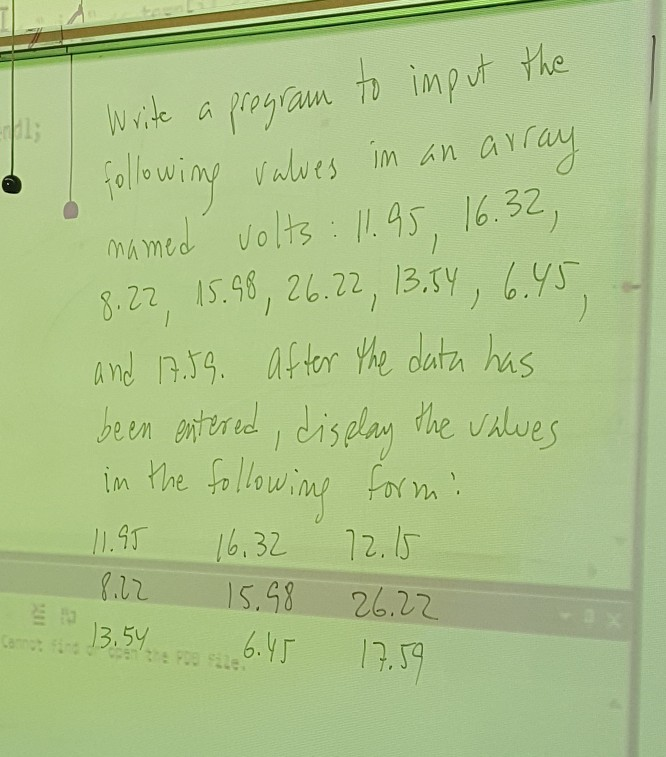 Write a program to input the
ndl;
following values in an array
named volts: 11.95, 16.32,
8.22, 15.98, 26.22, 13.54, 6.45,
and 17.59. after the data has
been entered, display the values
in the following form:
11.95 16.32 12.15
8.22 15.98 26.22
13.54 6.45 17.59
Cannot find or open the PDB file.